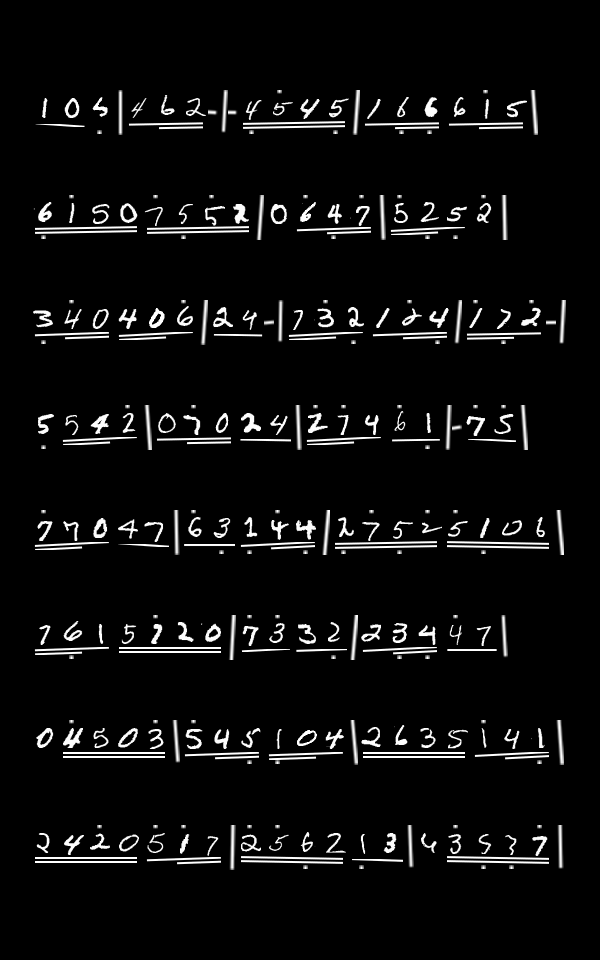 1 0 5 | 4 6 2 - | - 4 5 4 5 | 1 6 6 6 1 5 |
6 1 5 0 7 5 5 2 | 0 6 4 7 | 5 2 5 2 |
3 4 0 4 0 6 | 2 4 - | 7 3 2 1 2 4 | 1 7 2 - |
5 5 4 2 | 0 7 0 2 4 | 2 7 4 6 1 | - 7 5 |
7 7 0 4 7 | 6 3 1 4 4 | 2 7 5 2 5 1 0 6 |
7 6 1 5 7 2 0 | 7 3 3 2 | 2 3 4 4 7 |
0 4 5 0 3 | 5 4 5 1 0 4 | 2 6 3 5 1 4 1 |
2 4 2 0 5 1 7 | 2 5 6 2 1 3 | 4 3 5 3 7 |